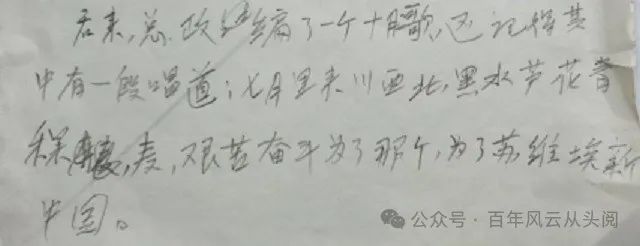 后来,总政还编了一个十月歌,还记得其
中有一段唱道:七月里来川西北,黑水芦花青
稞麦,艰苦奋斗为了那个,为了苏维埃新
中国。
公众号·百年风云从头阅